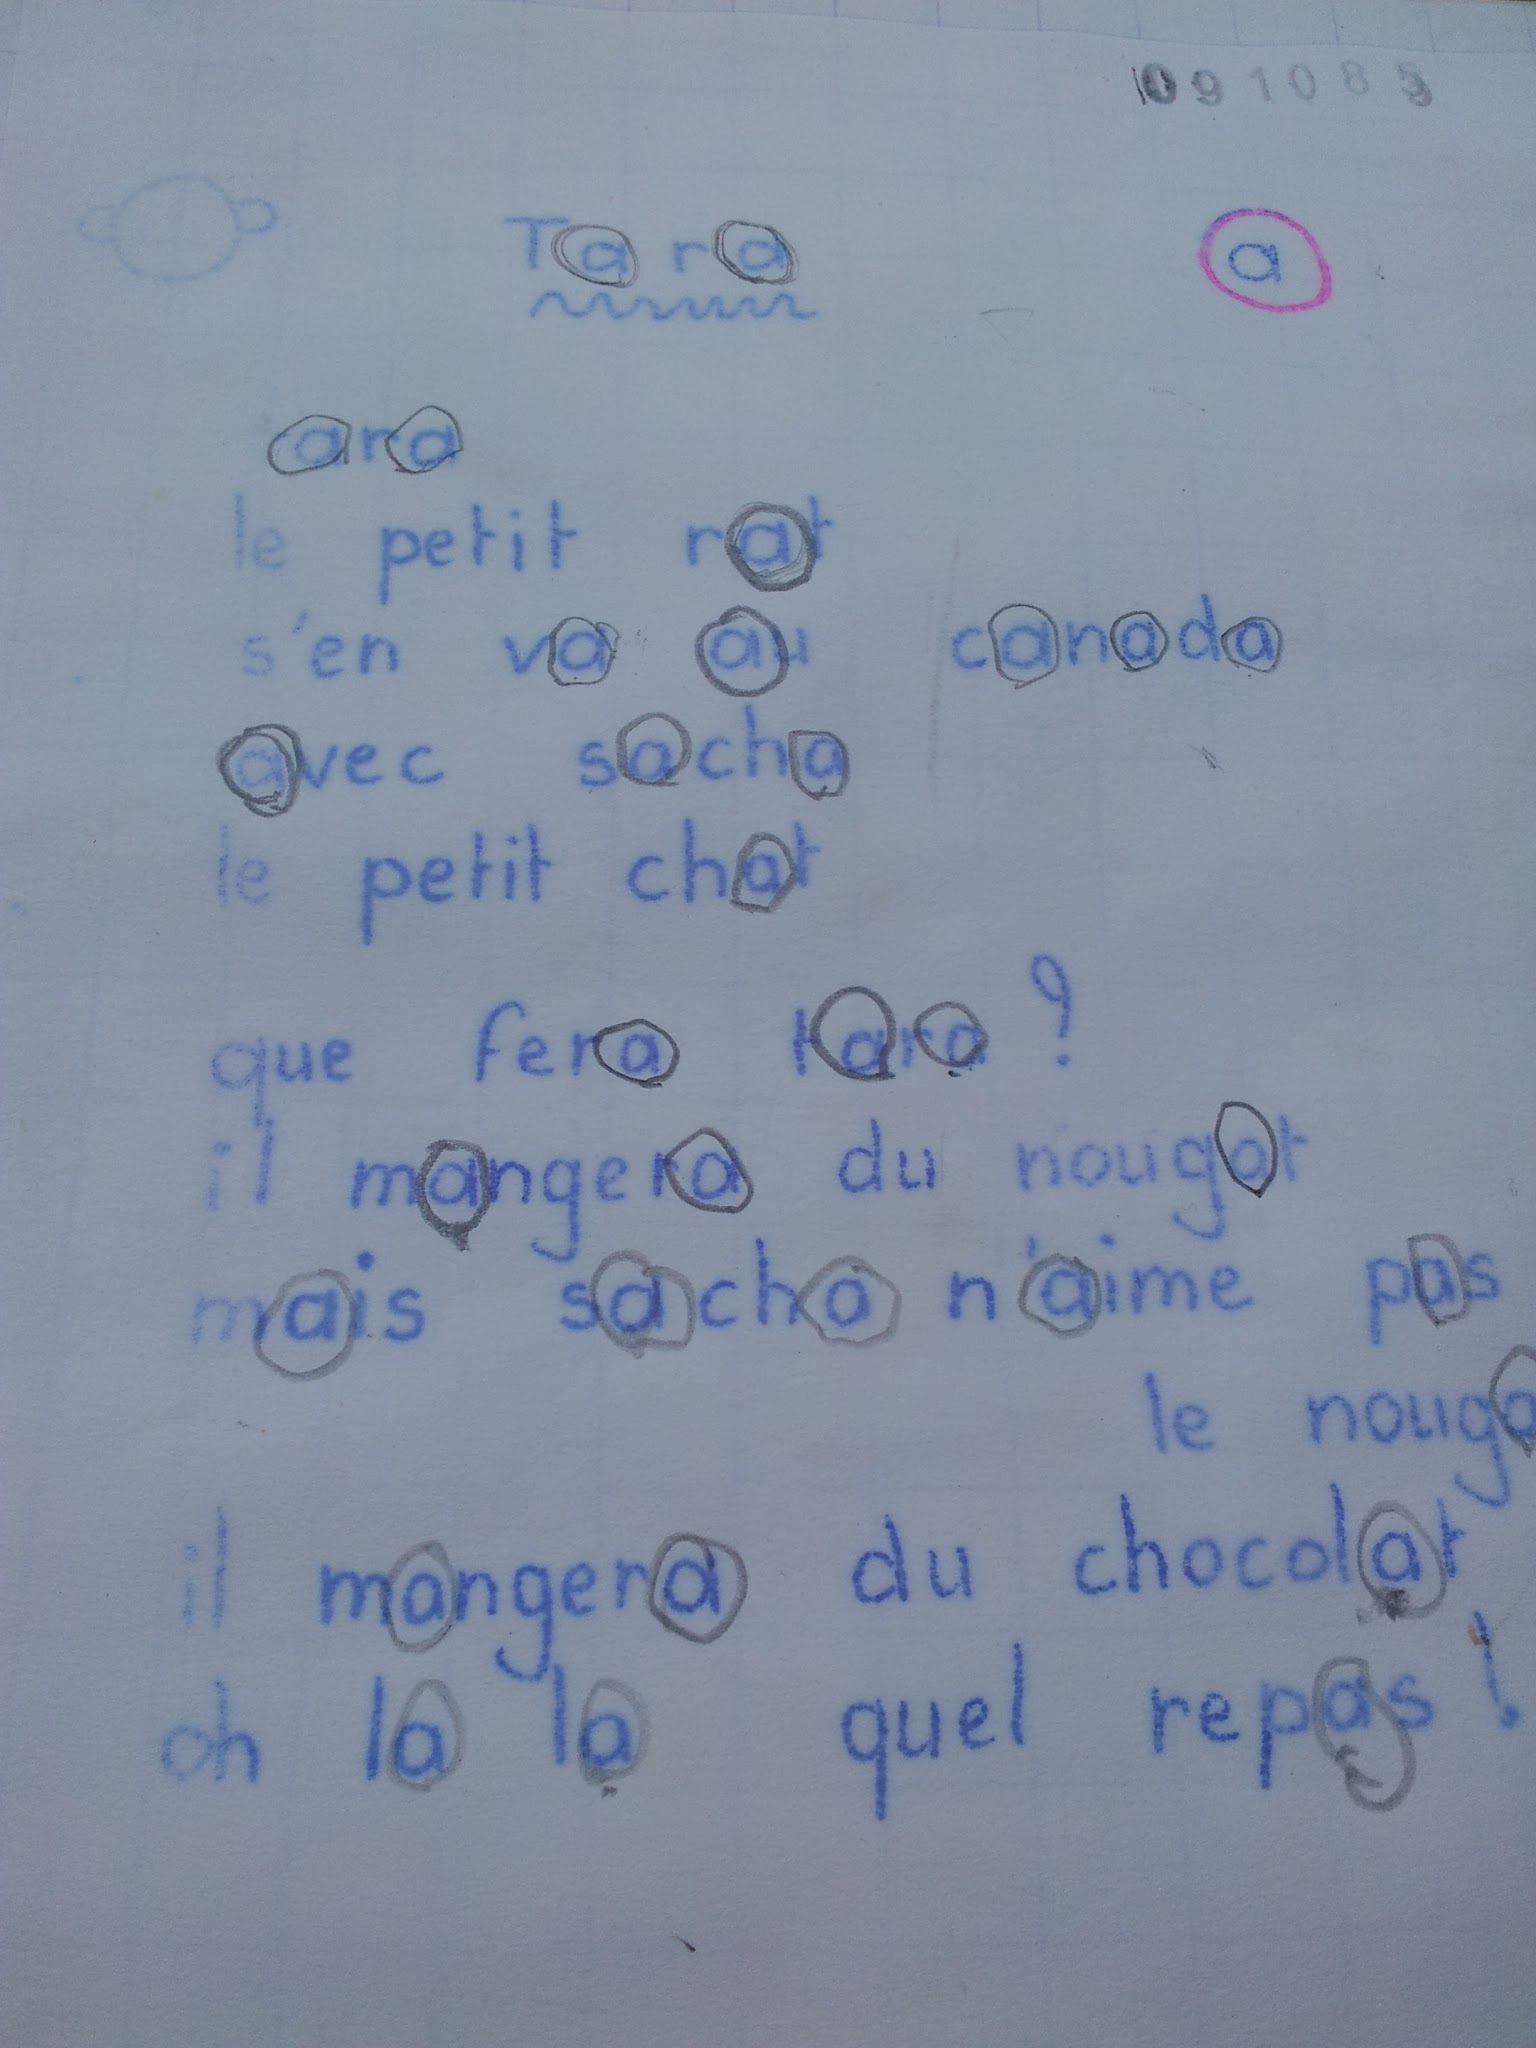 091085
Tara
a
ara
le petit rat
s'en va au canada
avec sacha
le petit chat
que fera tara ?
il mangera du nougat
mais sacha n'aime pas
le nouga
il mangera du chocolat
oh la la quel repas !